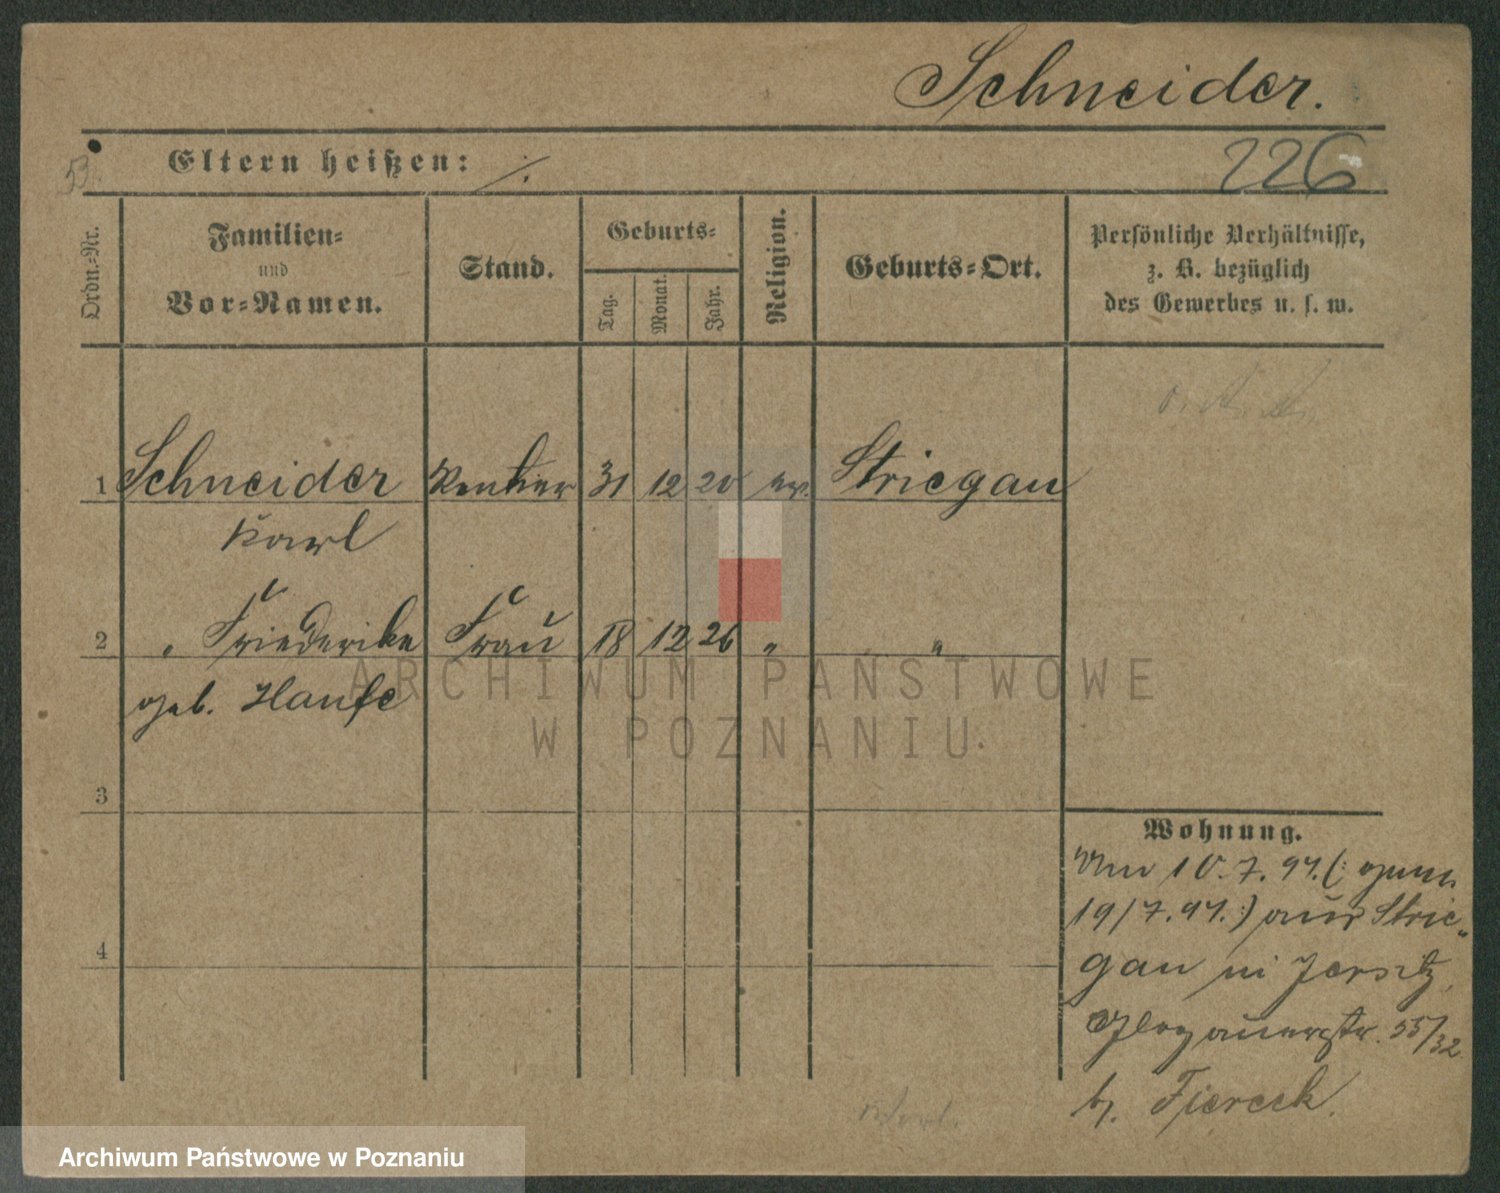 Schneider.
Eltern heißen: ./.
226
53
Ordn.-Nr.
Familien-
und
Vor-Namen.
Stand.
Geburts-
Tag.
Monat.
Jahr.
Religion.
Geburts-Ort.
Persönliche Verhältnisse,
z. B. bezüglich
des Gewerbes u. s. w.
1 Schneider Rentier 31 12 20 ev. Striegau
Karl
2 " Friederike Frau 18 12 26 " "
geb. Hanfe
3
4
Wohnung.
Am 10.7.97. (: gem.
19/7.97. :) aus Strie-
gau in Jersitz,
Glogauerstr. 55/32
b. Fiereck.
ARCHIWUM PAŃSTWOWE
W POZNANIU
Archiwum Państwowe w Poznaniu